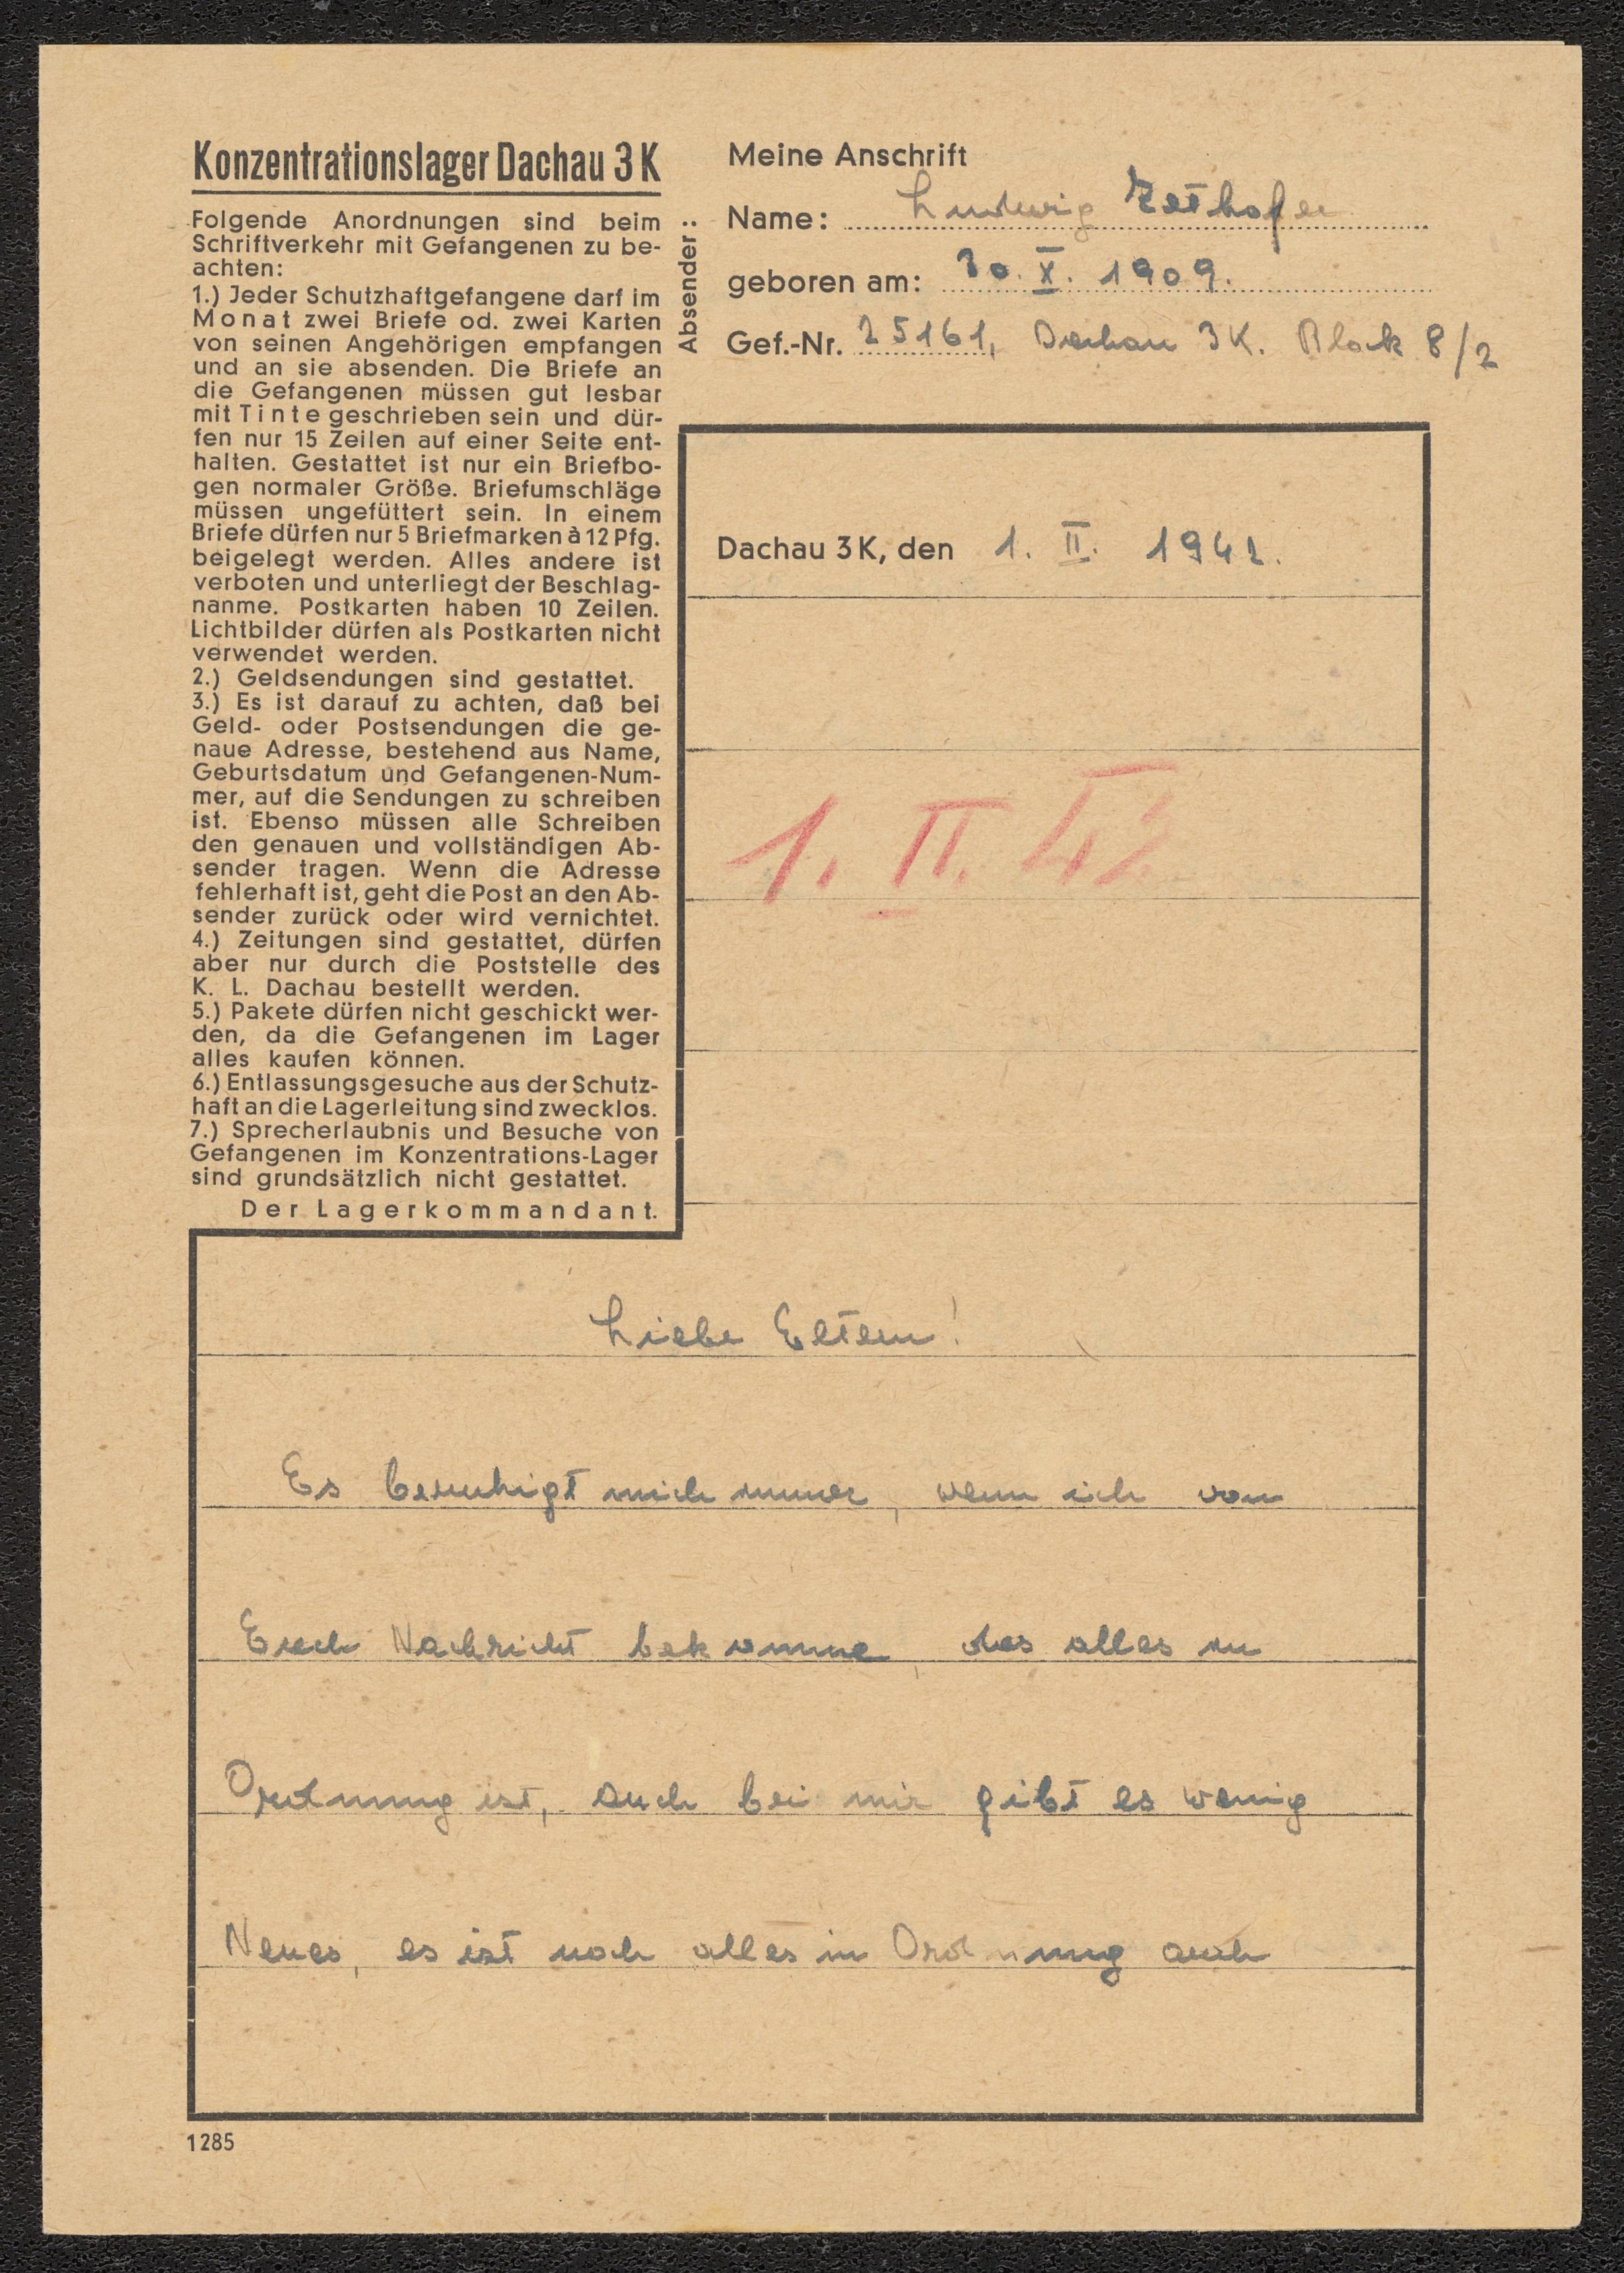 Konzentrationslager Dachau 3 K
Folgende Anordnungen sind beim
Schriftverkehr mit Gefangenen zu be-
achten:
1.) Jeder Schutzhaftgefangene darf im
Monat zwei Briefe od. zwei Karten
von seinen Angehörigen empfangen
und an sie absenden. Die Briefe an
die Gefangenen müssen gut lesbar
mit Tinte geschrieben sein und dür-
fen nur 15 Zeilen auf einer Seite ent-
halten. Gestattet ist nur ein Briefbo-
gen normaler Größe. Briefumschläge
müssen ungefüttert sein. In einem
Briefe dürfen nur 5 Briefmarken à 12 Pfg.
beigelegt werden. Alles andere ist
verboten und unterliegt der Beschlag-
nanme. Postkarten haben 10 Zeilen.
Lichtbilder dürfen als Postkarten nicht
verwendet werden.
2.) Geldsendungen sind gestattet.
3.) Es ist darauf zu achten, daß bei
Geld- oder Postsendungen die ge-
naue Adresse, bestehend aus Name,
Geburtsdatum und Gefangenen-Num-
mer, auf die Sendungen zu schreiben
ist. Ebenso müssen alle Schreiben
den genauen und vollständigen Ab-
sender tragen. Wenn die Adresse
fehlerhaft ist, geht die Post an den Ab-
sender zurück oder wird vernichtet.
4.) Zeitungen sind gestattet, dürfen
aber nur durch die Poststelle des
K. L. Dachau bestellt werden.
5.) Pakete dürfen nicht geschickt wer-
den, da die Gefangenen im Lager
alles kaufen können.
6.) Entlassungsgesuche aus der Schutz-
haft an die Lagerleitung sind zwecklos.
7.) Sprecherlaubnis und Besuche von
Gefangenen im Konzentrations-Lager
sind grundsätzlich nicht gestattet.
Der Lagerkommandant.
Absender:
Meine Anschrift
Name: Ludwig
geboren am: 30. X. 1909.
Gef.-Nr. 25161, Dachau 3K. Block 8/2
Dachau 3 K, den 1. II. 1942.
1. II. 42
Liebe Eltern!
Es beruhigt mich immer, wenn ich von
Euch Nachricht bekomme, das alles in
Ordnung ist, auch bei mir gibt es wenig
Neues, es ist noch alles in Ordnung auch
1285